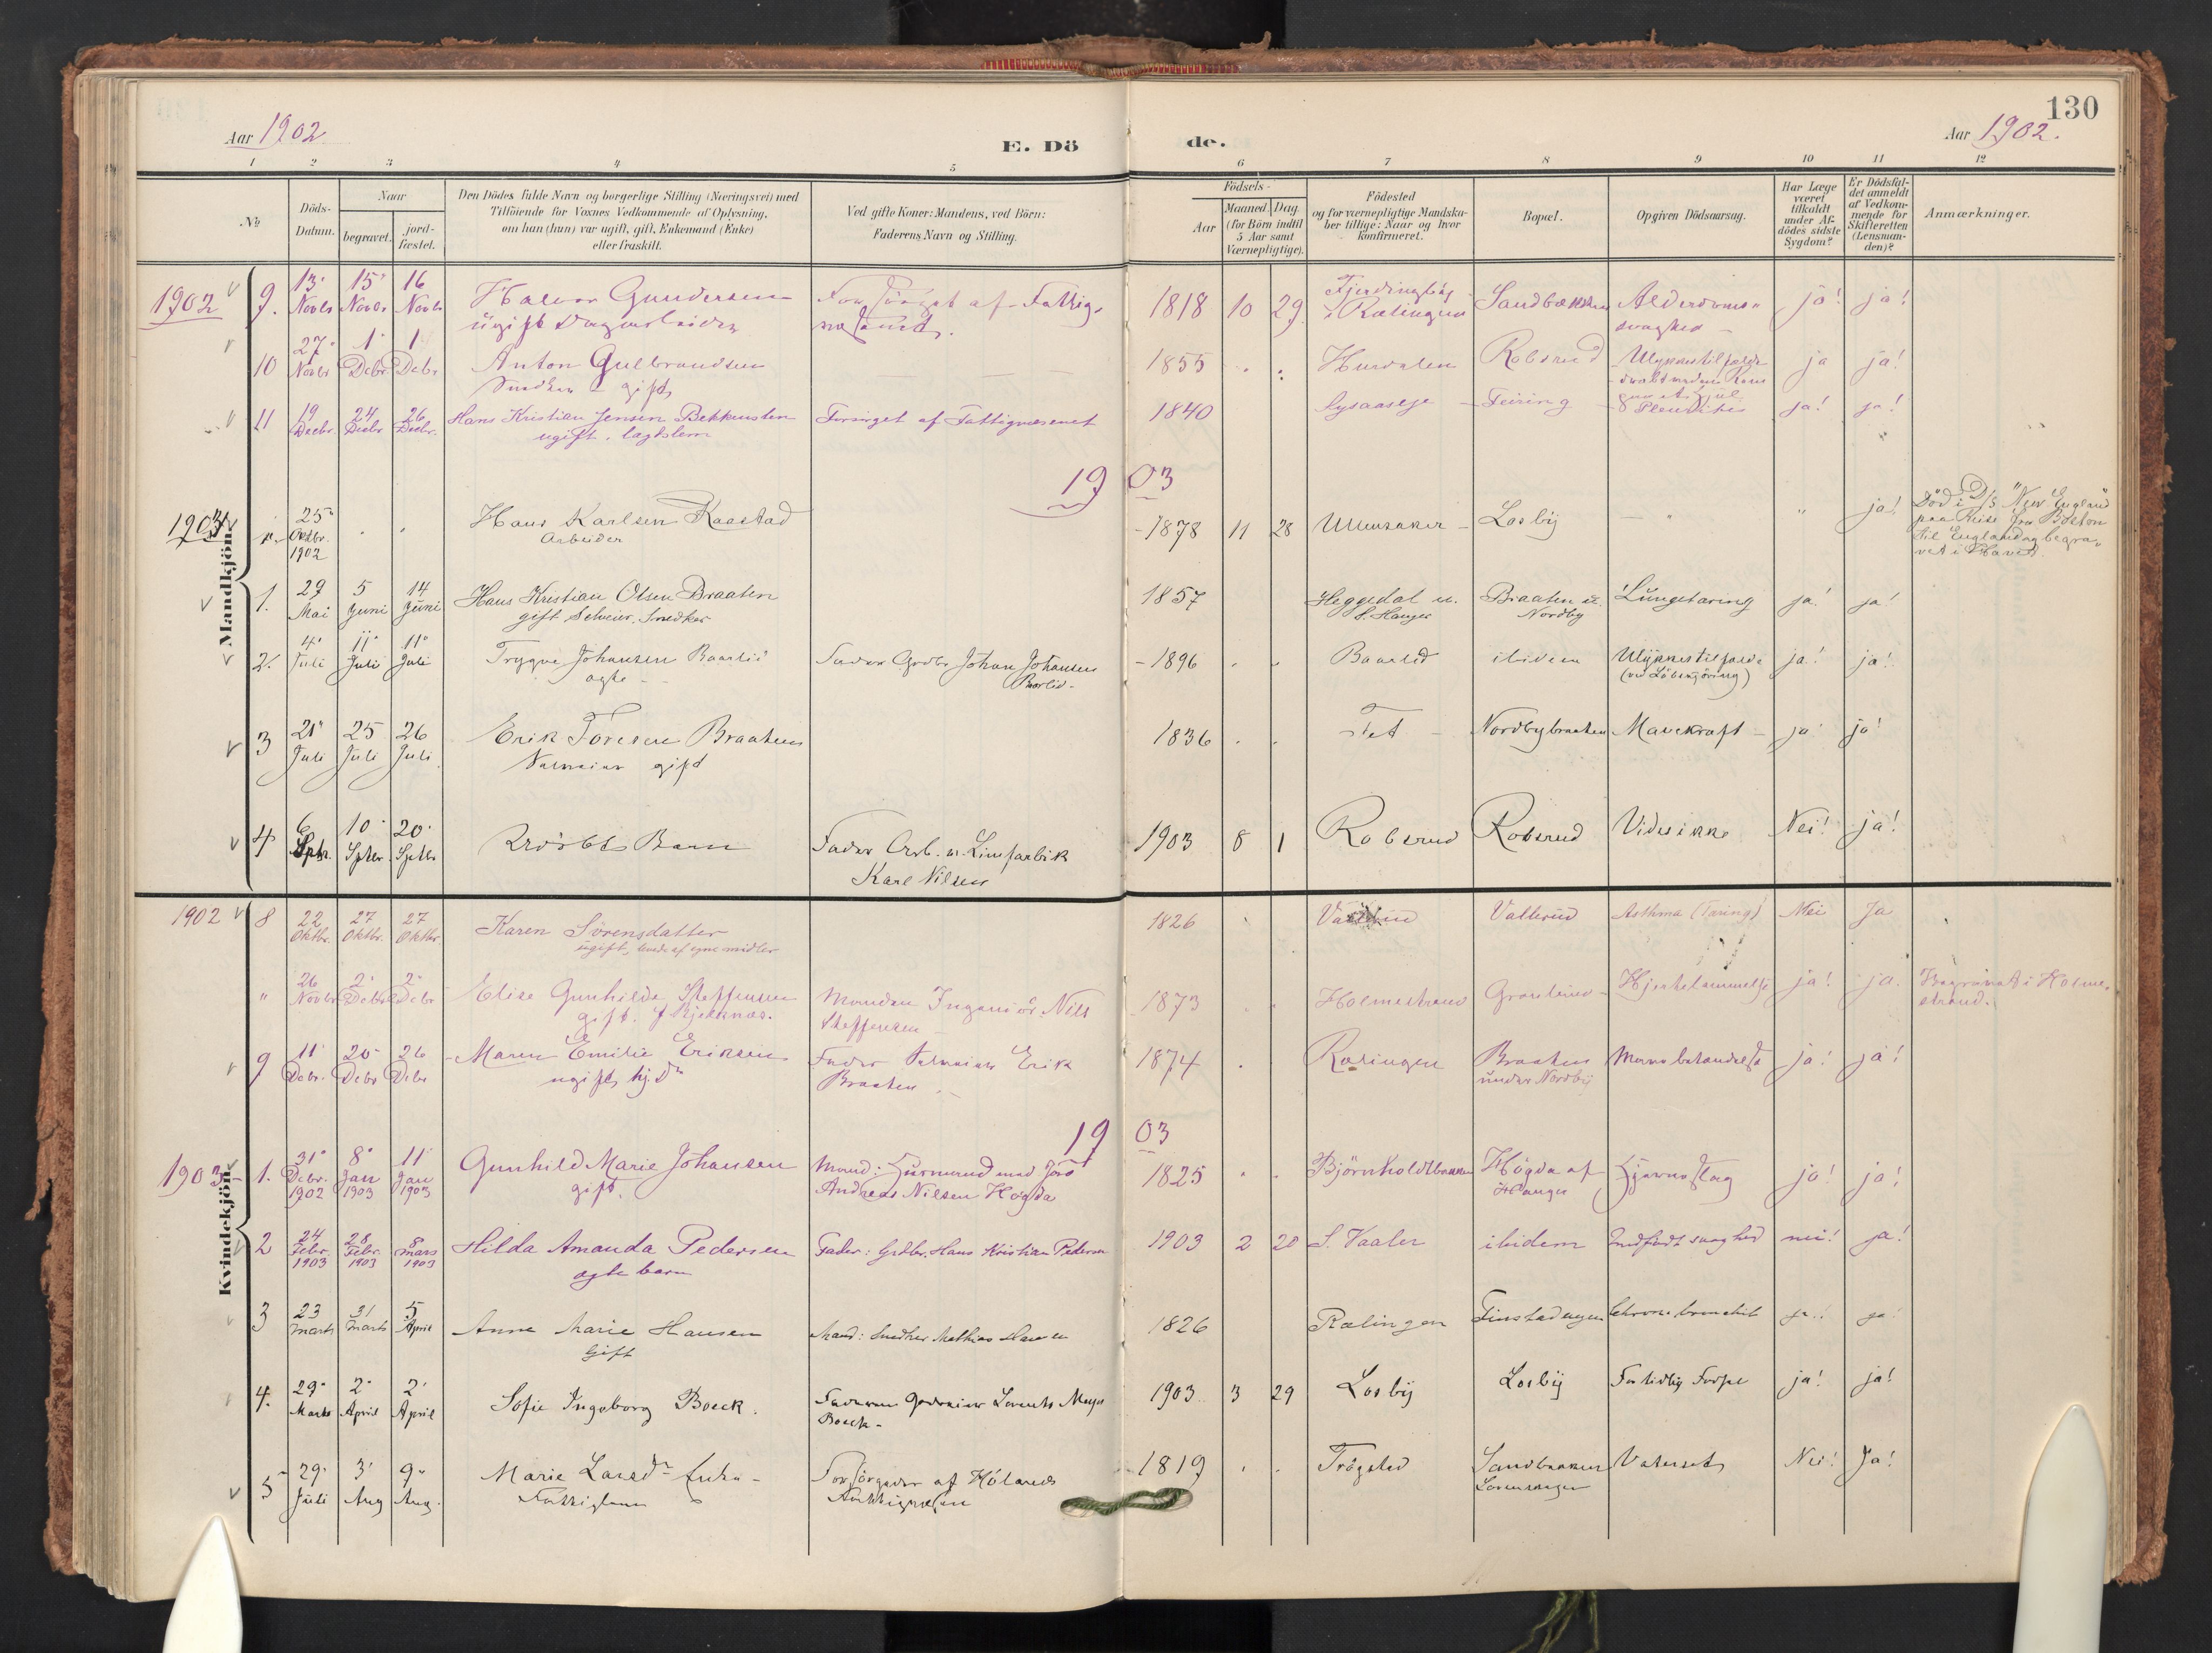 130
Aar 1902.
E. Dö
de.
Aar 1902.
1 2 3 4 5 6 7 8 9 10 11 12
No
Döds-
Datum.
Naar
begravet.
jord-
fæstet.
Den Dödes fulde Navn og borgerlige Stilling (Næringsvei) med
Tilföiende for Voxnes Vedkommende af Oplysning,
om han (hun) var ugift, gift, Enkemand (Enke)
eller fraskilt.
Ved gifte Koner: Mandens, ved Börn:
Faderens Navn og Stilling.
Födsels-
Aar
Maaned. Dag.
(for Börn indtil
5 Aar samt
Værnepligtige).
Födested
og for værnepligtige Mandska-
ber tillige: Naar og hvor
konfirmeret.
Bopæl.
Opgiven Dödsaarsag.
Har Læge
været
tilkaldt
under Af-
dödes sidste
Sygdom?
Er Dödsfal-
det anmeldt
af Vedkom-
mende for
Skifteretten
(Lensman-
den)?
Anmærkninger.
Mandkjön.
1902 9. 13 Novbr 15 Novbr 16 Novbr Halvor Gundersen 1818 10 29 ja! ja!
ugift Dagarbeider
i Rælingen
svaghed
10 27 Novbr 1 Debr 1 Debr Anton Gulbrandsen 1855 Hurdalen Robsrud Ulykkestilfælde ja ja!
Snedker - gift
11 19 Decbr 24 Decbr 26 Decbr. Hans Kristian Jensen Bekkensten Forsørget af Fattigvæsenet 1840 Lysaaseje Feiring Pleuritis ja! ja!
ugift. lægdslem
1903
1903 25 Oktbr. 1902 Hans Karlsen Raastad 1878 11 28 Ullensaker Losby " " ja! Död i D/S "New England"
Arbeider
paa Reise fra Boston
til England og begra-
vet i Havet.
1. 29 Mai 5 Juni 14 Juni Hans Kristian Olsen Braaten 1857 Heggedal u. Braaten u. Lungetæring ja! ja!
gift Selveier, Snedker
S. Hauger
Nordby
2. 4 Juli 11 Juli 11 Juli Trygve Johansen Baarlid Fader Grdbr Johan Johansen 1896 Baarlid ibidem Ulykkestilfælde ja! ja!
ægte
Baarlid
3 21 Juli 25 Juli 26 Juli Erik Toresen Braaten 1836 Fet Nordbybraaten Mavekræft ja! ja!
Selveier gift
4 6 Sptbr. 10 Sptbr. 20 Sptbr Udöbt Barn Fader Arb. v. Limfabrik 1903 8 1 Robsrud Robsrud Vides ikke Nei! ja!
Karl Nilsen
Kvindekjön.
1902 8 22 Oktbr. 27 Oktbr. 27 Oktbr. Karen Sörensdatter 1826 Vallerud Asthma (Tæring) Nei Ja
ugift, levede af egne midler
" 26 Novbr 2 Debr 2 Debr Elise Gunhilde Steffensen Manden Ingeniör Nils 1873 Holmestrand ja! ja. Begravet i Holme-
Steffensen
strand.
9 11 Debr. 20 Debr 26 Debr Maren Emilie Eriksen Fader Selveier Erik 1874 Rælingen Braaten ja! ja!
ugift, hj. Dr
Braaten
under Nordby
1903
1903 1. 31 Debr. 1902 8 Jan 1903 11 Jan 1903 Gunhild Marie Johansen 1825 Högda af Hjerneslag ja! ja!
gift.
Andreas Nilsen Högda
Hauger
2 24 Febr. 1903 28 Febr. 1903 8 Mars 1903 Hilda Amanda Pedersen Fader: Grdbr. Hans Kristian Pedersen 1903 2 20 S. Vaaler ibidem Medfødt svaghed nei! ja!
ægte barn
3 23 Marts 31 Marts 5 April Anne Marie Hansen Mand: Snedker Mathias Hansen 1826 Rælingen Finstadengen Chron. bronchit ja! ja
Gift
4. 29 Marts 2 April 2 April Sofie Ingeborg Boeck. Lorentz Meyer 1903 3 29 Losby Losby For tidlig Fødsel ja! ja!
Boeck
5 29 Juli 3 Aug 9 Aug. Marie Larsdr Enke Forsørgedes af Hölands 1819 Trøgstad Sandbakken Vatersot Nei! Ja!
Fattiglem
Fattigvæsen
Lørenskogen